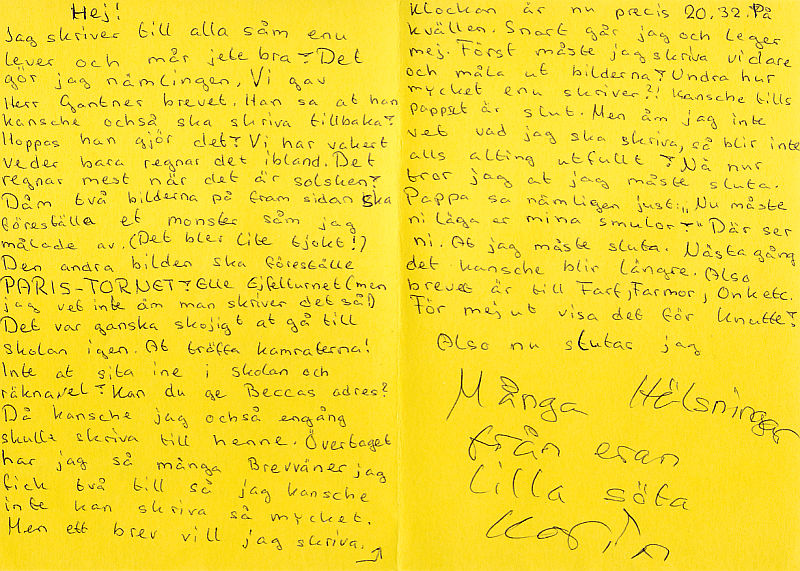 Hej!
Jag skriver till alla såm enu
lever och mår jete bra? Det
gör jag nämlingen. Vi gav
Herr Gantner brevet. Han sa at han
kansche ochså ska skriva tillbaka?
Hoppas han gjör det? Vi har vakert
veder bara regnar det ibland. Det
regnar mest när det är solsken?
Dåm två bilderna på fram sidan ska
föreställa et monster såm jag
målade av. (Det blev lite tjokt!)
Den andra bilden ska föreställe
PARIS-TORNET? Elle Ejfelturnet (men
jag vet inte åm man skriver det så!)
Det var ganska skojigt at gå till
skolan igen. At träffa kamraterna!
Inte at sita ine i skolan och
räknavel? Kan du ge Beccas adres?
Då kansche jag ochså engång
skulle skriva till henne. Övertaget
har jag så många Brevväner jag
fick två till så jag kansche
inte kan skriva så mycket.
Men ett brev vill jag skriva. →
Klockan är nu precis 20.32. På
kvällen. Snart går jag och leger
mej. Först måste jag skriva vidare
och måla ut bilderna? Undra hur
mycket enu skriver?! Kansche tills
pappset är slut. Men åm jag inte
vet vad jag ska skriva, så blir inte
alls alting utfullt? Nå nur
tror jag at jag måste sluta.
Pappa sa nämligen just: „Nu måste
ni läga er mina smulor?" Där ser
ni. At jag måste sluta. Nästa gång
det kansche blir längre. Also
brevet är till Farf, Farmor, Onk etc.
För mej ut visa det för Knutte?
Also nu slutar jag
Många Hälsningar
från eran
lilla söta
Karin